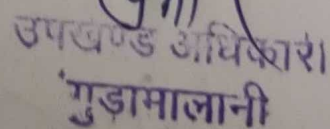 उपखण्ड अधिकारी
गुड़ामालानी